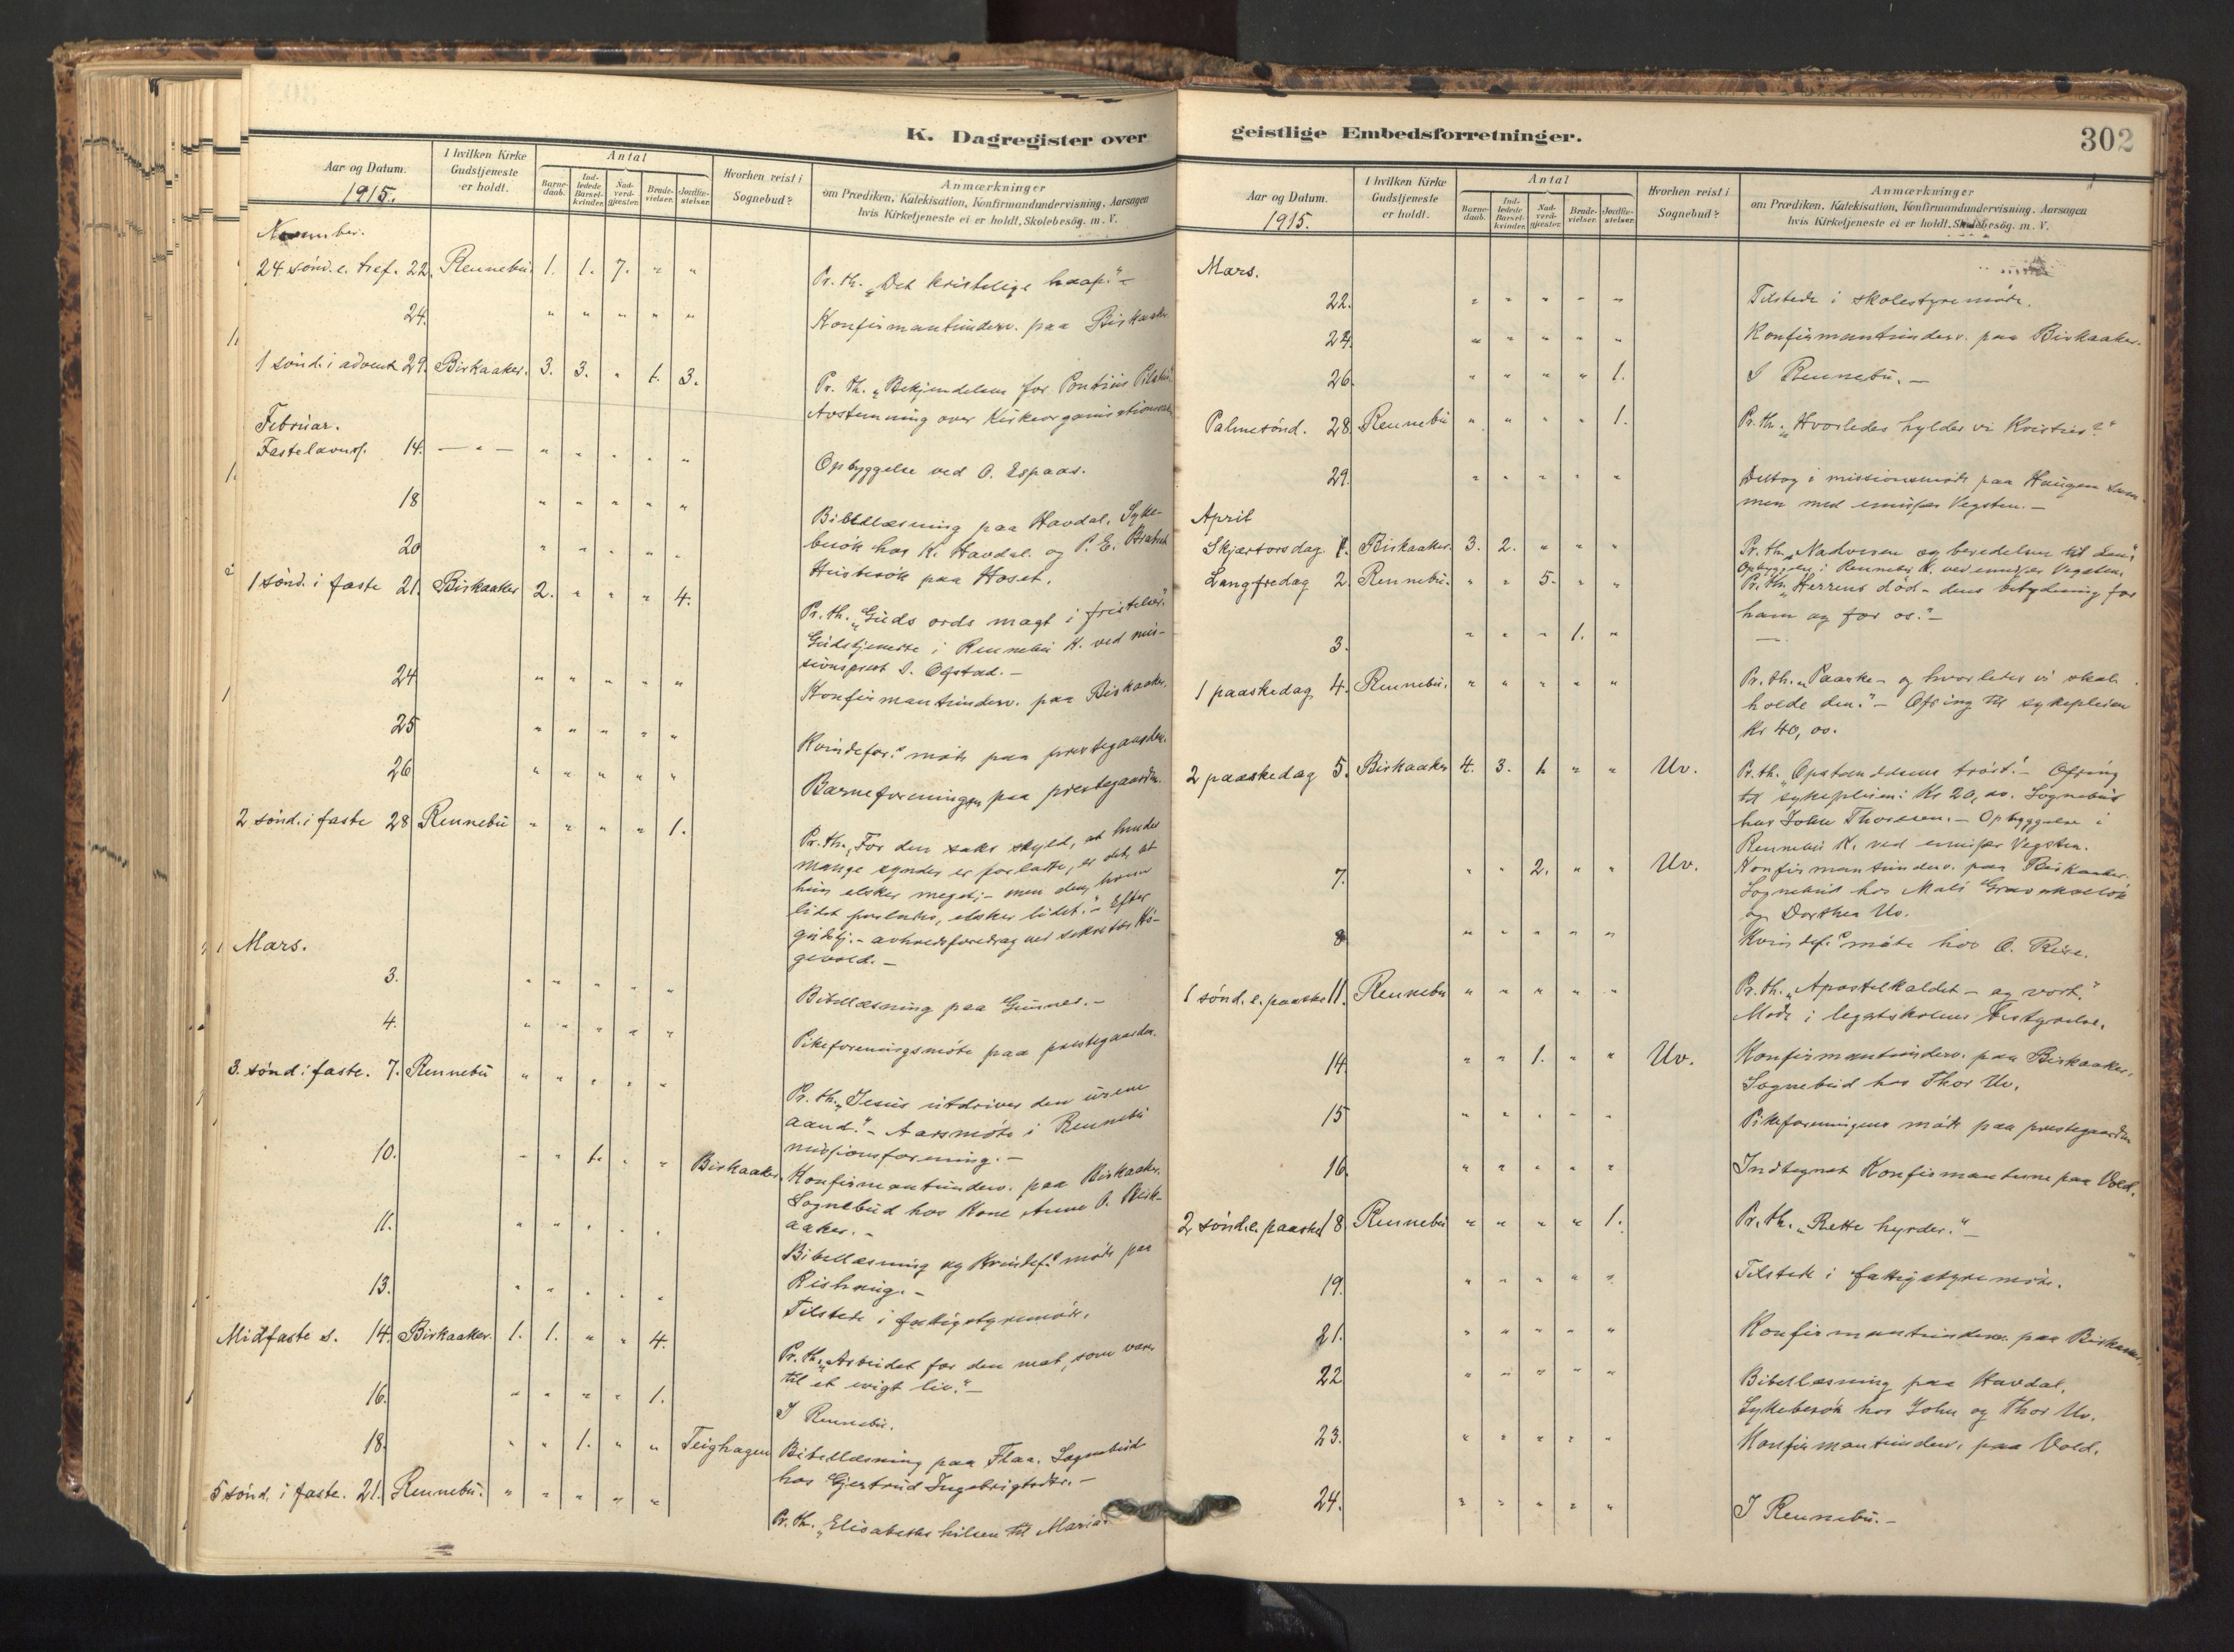 K. Dagregister over
Aar og Datum.
1915.
I hvilken Kirke
Gudstjeneste
er holdt.
Antal
Barne-
daab.
Ind-
ledede
Barsel-
kvinder.
Nad-
verd-
gjester.
Brude-
vielser.
Jordfæ-
stelser.
Hvorhen reist i
Sognebud?
Anmærkninger
om Prædiken, Katekisation, Konfirmandundervisning, Aarsagen
hvis Kirketjeneste ei er holdt, Skolebesög. m. V.
November.
24 sönd. e. tref. 22. Rennebu. 1. 1. 7. " " Pr. th. „Det kristelige haap."-
24. " " " " " Konfirmantunderv. paa Birkaaker
1 sönd. i advent 29. Birkaaker. 3. 3. " 1. 3. Pr. th. „Bekjendelsen for Pontius Pilatus"
Avstemning over
Februar.
Fastelavnss. 14. — " — " " " " " Opbyggelse ved O. Espaas.
18 " " " " " Bibellæsning paa Havdal. Syke-
besök hos K. Havdal og P. E.
20 " " " " " Husbesök paa Hoset.
1 sönd. i faste 21. Birkaaker 2. " " " 4. Pr. th. „Guds ords magt i fristelser."
Gudstjeneste i Rennebu K. ved mis-
sionsprest S. Ofstad. -
24 " " " " " Konfirmantunderv. paa Birkaaker.
25 " " " " " Kvindefor.s möte paa prestegaarden.
26 " " " " " Barneforeningen paa prestegaarden.
2 sönd. i faste 28 Rennebu " " " " 1. Pr. th. „For den saks skyld, at hendes
mange synder er forlatte, er det, at
hun elsker meget; - men den, hvem
lidet forlates, elsker lidet." - Efter
gudstj. - avholdsforedrag ved sekretær Hö-
gevold. -
Mars.
3. " " " " " Bibellæsning paa Gunnes. -
4. " " " " " Pikeforeningsmöte paa prestegaarden.
3. sönd. i faste. 7. Rennebu " " " " " Pr. th. „Jesus utdriver den urene
aand." - Aarsmöte i Rennebu
missionsforening. -
10. " " 1. " " Birkaaker. Konfirmantunderv. paa Birkaaker.
Sognebud hos Kone Anne O. Birk-
aaker. -
11. " " " " " Bibellæsning og Kvindef.s möte paa
Rishaug. -
13. " " " " " Tilstede i fattigstyremöte.
Midfaste s. 14. Birkaaker. 1. 1. " " 4. Pr. th. „Arbeidet for den mat, som varer
til et evigt liv." -
16. " " " " 1. I Rennebu.
18. " " 1. " " Teighagen Bibellæsning paa Flaa. Sognebud
hos Gjertrud Ingebrigtsdtr. -
5 sönd. i faste. 21. Rennebu. " " " " " Pr. th. „Elisabeths hilsen til Maria."
geistlige Embedsforretninger.
302
Aar og Datum.
1915.
I hvilken Kirke
Gudstjeneste
er holdt.
Antal
Barne-
daab.
Ind-
ledede
Barsel-
kvinder.
Nad-
verd-
gjester.
Brude-
vielser.
Jordfæ-
stelser.
Hvorhen reist i
Sognebud?
Anmærkninger
om Prædiken, Katekisation, Konfirmandundervisning, Aarsagen
hvis Kirketjeneste ei er holdt, Skolebesög. m. V.
Mars.
22. " " " " " Tilstede i skolestyremöte.
24. " " " " " Konfirmantunderv. paa Birkaaker.
26. " " " " 1. I Rennebu. -
Palmesönd. 28. Rennebu " " " " 1. Pr. th. „Hvorledes hylder vi Kristus?"
29. " " " " " Deltog i missionsmöte paa Haugen sam-
men med emissær Vegsten. -
April
Skjærtorsdag. 1. Birkaaker. 3. 2. " " " Pr. th. „Nadveren og beredelsen til den"
Opbyggelse i Rennebu K. ved emissær Vegsten.
Langfredag 2. Rennebu. " " 5. " " Pr. th. „Herrens död - dens betydning for
ham og for os." -
3. " " " 1. " —
1 paaskedag 4. Rennebu. " " " " " Pr. th. „Paaske - og hvorledes vi skal
holde den." - Ofring til sykepleien
Kr 40,00.
2 paaskedag 5. Birkaaker 4. 3. 1. " " Uv. Pr. th. „Opstandelsens tröst." - Ofring
til sykepleien: Kr 20,00. Sognebud
hos John Thoresen. - Opbyggelse i
Rennebu K. ved emissær Vegsten.
7. " " 2. " " Uv. Konfirmantunderv. paa Birkaaker.
Sognebud hos Mali
og Dorthea Uv.
8 " " " " " Kvindef.s möte hos O. Reise.
1 sönd. e. paaske 11. Rennebu " " " " " Pr. th. „Apostelkaldet - og vort."
Möte i legatskolens bestyrelse.
14. " " 1. " " Uv. Konfirmantunderv. paa Birkaaker.
Sognebud hos Thor Uv.
15 " " " " " Pikeforeningens möte paa prestegaarden
16. " " " " " Indtegnet Konfirmanterne paa Vold.
2 sönd. e. paaske 18. Rennebu " " " " 1. Pr. th. „Rette hyrder." -
19. " " " " " Tilstede i fattigstyremöte.
21. " " " " " Konfirmantunderv. paa Birkaaker.
22 " " " " " Bibellæsning paa Havdal.
Sykebesök hos John og Thor Uv.
23. " " " " " Konfirmantunderv. paa Vold.
24. " " " " " I Rennebu. -